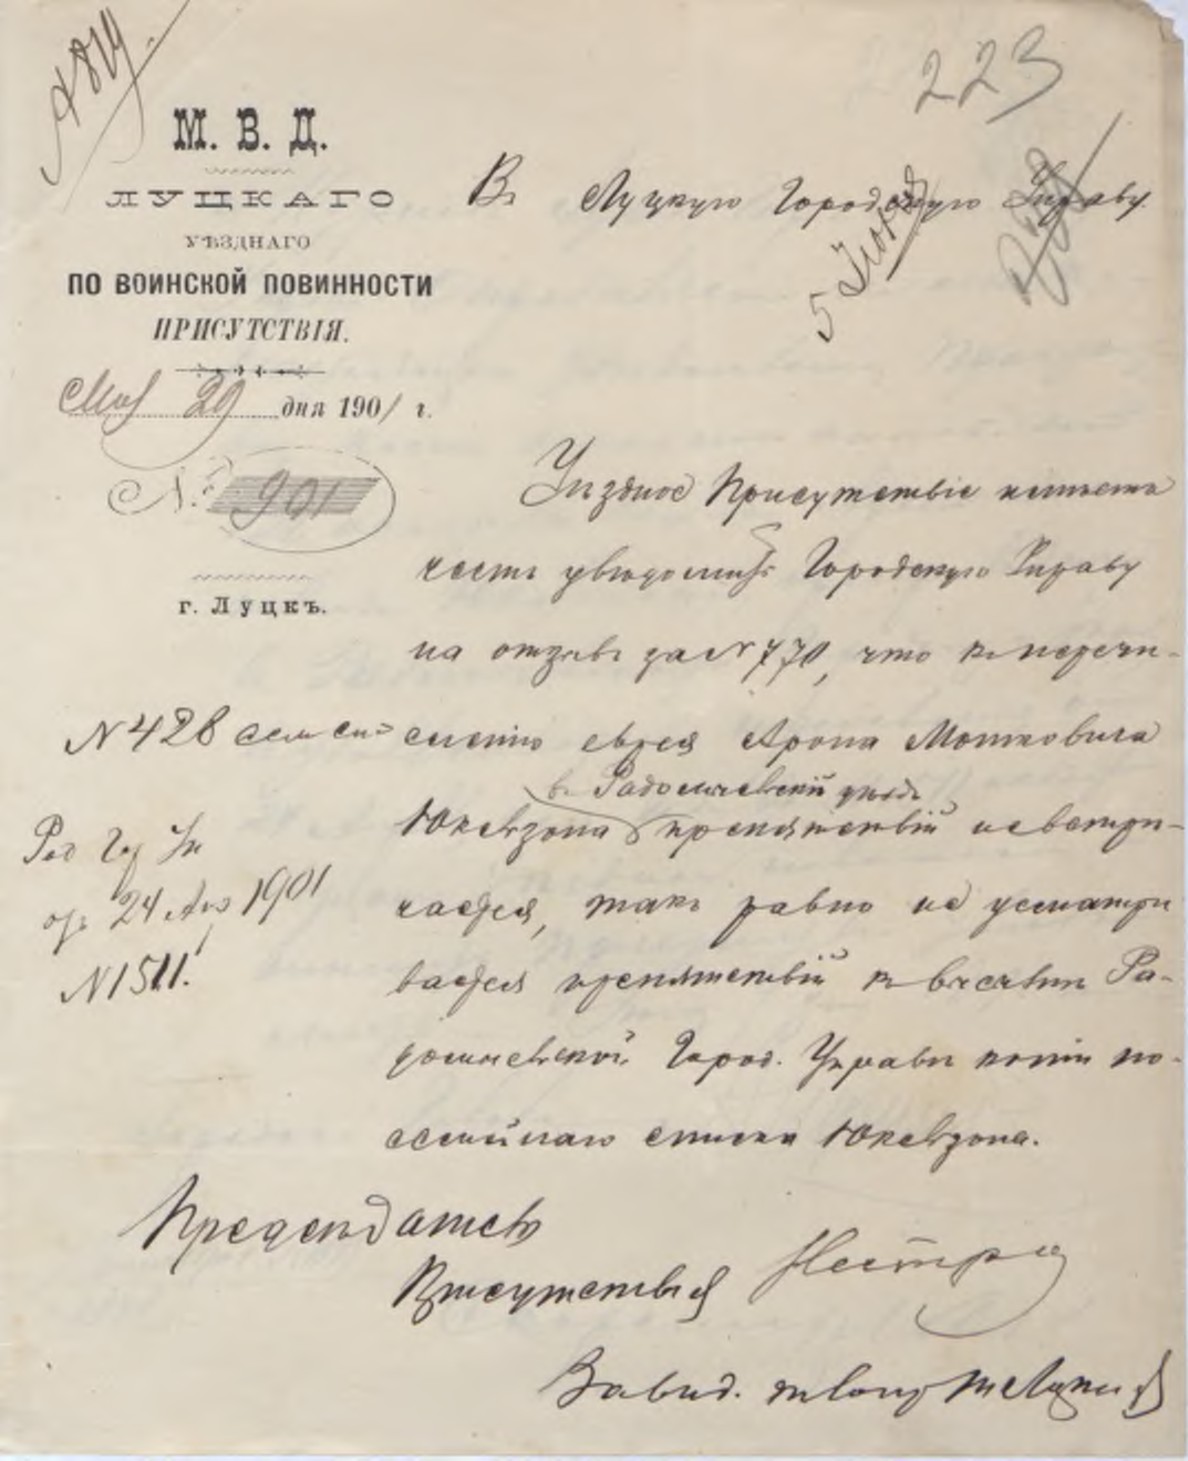 223
М. В. Д.
ЛУЦКАГО
УѢЗДНАГО
ПО ВОИНСКОЙ ПОВИННОСТИ
ПРИСУТСТВІЯ.
Мая 29 дня 1901 г.
№ 901
г. Луцкъ.
Въ Луцкую Городскую Управу
5 Іюня
Уѣздное Присутствіе имѣетъ
честь увѣдомить Городскую Управу
на отзывъ за № 770, что къ перечи-
сленію еврея Арона Мотковича
въ Радомысльскій уѣздъ
Юкельзона препятствій не встрѣ-
чается, такъ равно не усматри
вается препятствій къ высылкѣ Ра-
домысльской Город. Управѣ копіи по-
семейнаго списка Юкельзона.
№ 428 сем сп
Рад Гор Уп
отъ 24 Апр 1901
№ 1511.
Предсѣдатель
Присутствія
Завѣд.